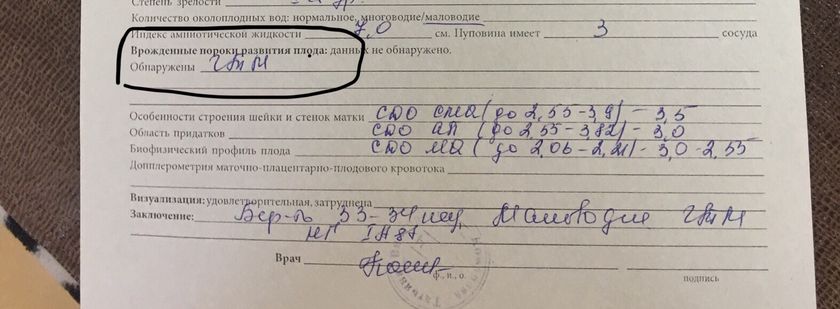 Степень зрелости
Количество околоплодных вод: нормальное, многоводие/маловодие
Индекс амниотической жидкости 7,0 см. Пуповина имеет 3 сосуда
Врожденные пороки развития плода: данных не обнаружено.
Обнаружены
Особенности строения шейки и стенок матки СДО СМА (до 2,55-3,9) - 3,5
Область придатков СДО АП (до 2,55-3,82) - 3,0
Биофизический профиль плода СДО МА (до 2,06-2,21) - 3,0-2,55
Допплерометрия маточно-плацентарно-плодового кровотока
Визуализация: удовлетворительная, затруднена
Заключение: Бер-ть 33-34 нед Маловодие
НГ
Врач
ф., и., о.
подпись